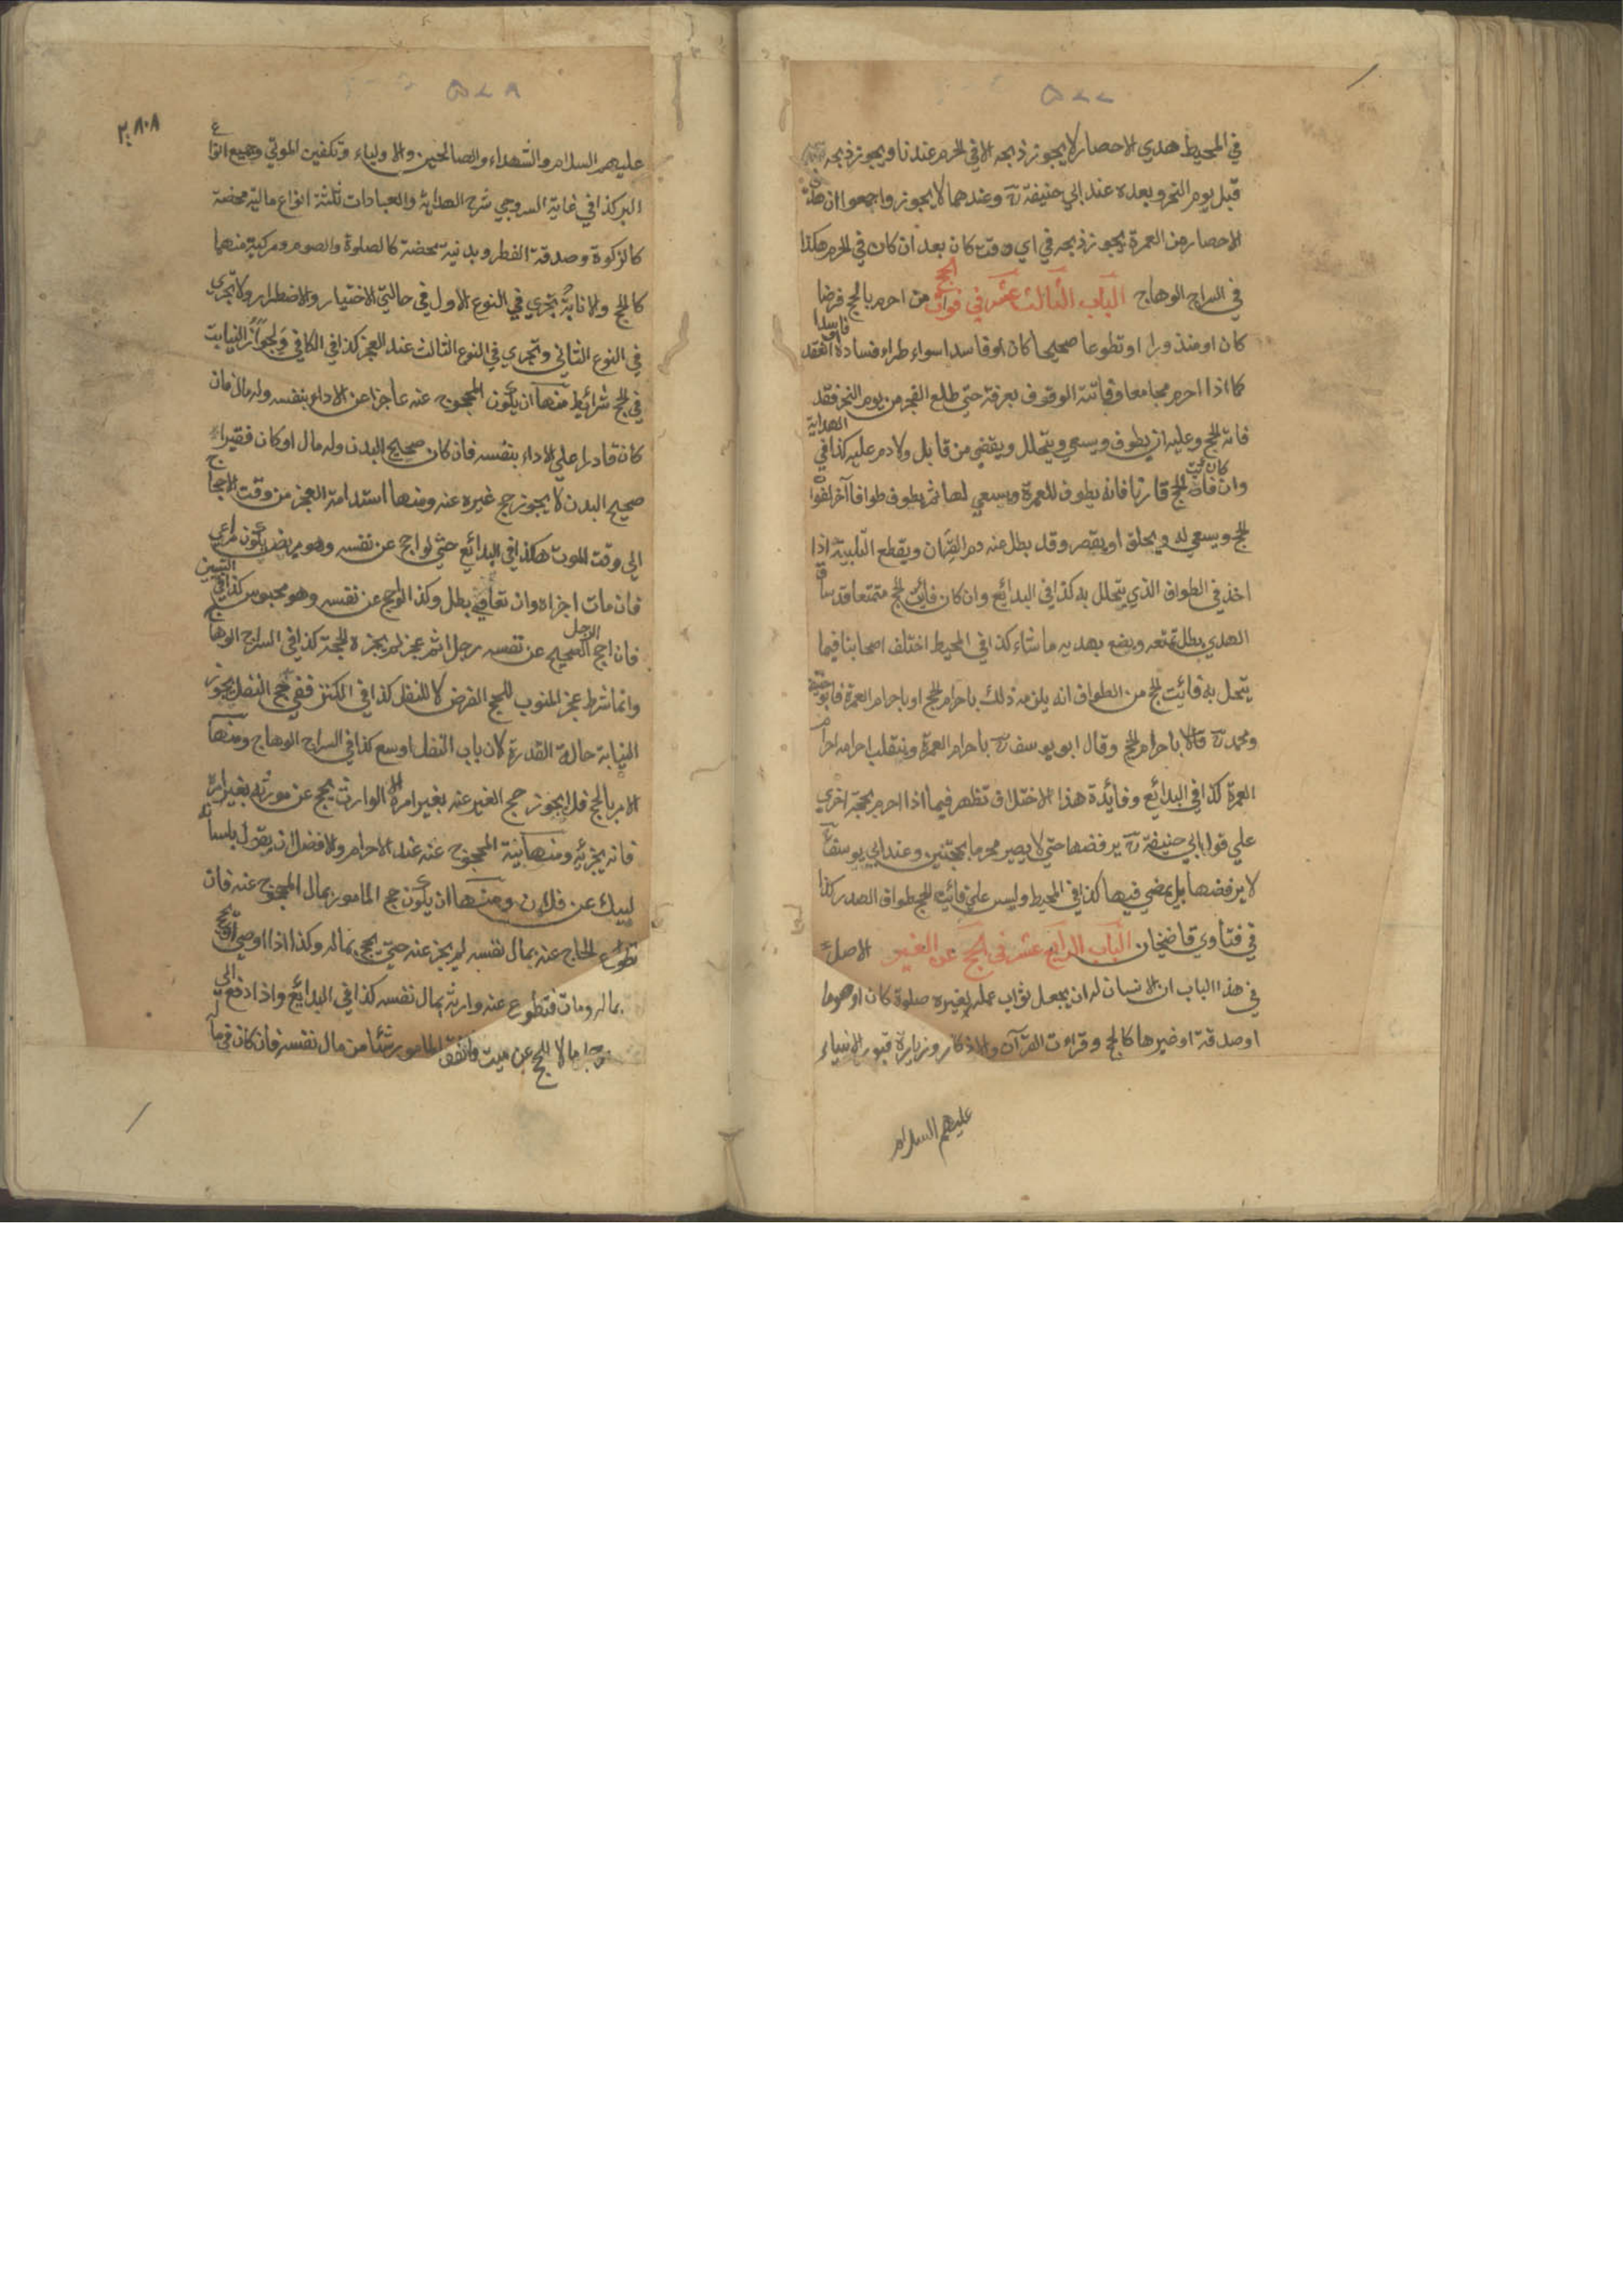 ٥٧٧
في المحيط هدي الاحصار لا يجوز ذبحه الا في الحرم عندنا ويجوز ذبحه
قبل يوم النحر وبعده عند ابي حنيفة رح وعندهما لا يجوز واجمعوا ان هدي
الاحصار من العمرة يجوز ذبحه في اي وقت كان بعد ان كان في الحرم هكذا
في السراج الوهاج الباب الثالث عشر في فوات الحج من احرم بالحج فرضا
كان او منذورا او تطوعا صحيحا كان او فاسدا سواء طراء فساده او انعقد فاسدا
كما اذا احرم مجامعا وفاتته الوقوف بعرفة حتي طلع الفجر من يوم النحر فقد
فاته الحج وعليه ان يطوف ويسعي ويتحلل ويقضي من قابل ولا دم عليه كذا في الهداية
وان كان فائت الحج قارنا فانه يطوف للعمرة ويسعي لها ثم يطوف طوافا آخر لفوات
الحج ويسعي له ويحلق او يقصر وقد بطل عنه دم القران ويقطع التلبية اذا
اخذ في الطواف الذي يتحلل به كذا في البدائع وان كان فائت الحج متمتعا قد ساق
الهدي بطل تمتعه ويضع بهديه ما شاء كذا في المحيط اختلف اصحابنا فيما
يتحلل به فائت الحج من الطواف انه يلزمه ذلك باحرام الحج او باحرام العمرة فابو حنيفة
ومحمد رح قالا باحرام الحج وقال ابو يوسف رح باحرام العمرة وينقلب احرامه احرام
العمرة كذا في البدائع وفائدة هذا الاختلاف تظهر فيما اذا احرم بحجة اخري
علي قول ابي حنيفة رح يرفضها حتي لا يصير محرما بحجتين وعند ابي يوسف رح
لا يرفضها بل يمضي فيها كذا في المحيط وليس علي فائت الحج طواف الصدر كذا
في فتاوي قاضيخان الباب الرابع عشر في الحج عن الغير الاصل
في هذا الباب ان الانسان له ان يجعل ثواب عمله لغيره صلوة كان او صوما
او صدقة او غيرها كالحج وقراءت القرآن والاذكار وزيارة قبور الانبياء
عليهم السلام
٥٧٨
عليهم السلام والشهداء والصالحين والاولياء وتكفين الموتي وجميع انواع
البر كذا في غاية السروجي شرح الهداية والعبادات ثلثة انواع مالية محضة
كالزكوة وصدقة الفطر وبدنية محضة كالصلوة والصوم ومركبة منهما
كالحج والانابة تجري في النوع الاول في حالتي الاختيار والاضطرار ولا تجري
في النوع الثاني وتجري في النوع الثالث عند العجز كذا في الكافي ولجواز النيابت
في الحج شرائط منها ان يكون المحجوج عنه عاجزا عن الاداء بنفسه وله مال فان
كان قادرا علي الاداء بنفسه فان كان صحيح البدن وله مال او كان فقيرا
صحيح البدن لا يجوز حج غيره عنه ومنها استدامة العجز من وقت الاحجاج
الي وقت الموت هكذا في البدائع حتي لو احج عن نفسه وهو مريض يكون مراعي
فان مات اجزاه وان تعافي بطل وكذا لو احج عن نفسه وهو محبوس كذا في التبيين
فان احج الرجل الصحيح عن نفسه رجلا ثم عجز لم يجزه الحجة كذا في السراج الوهاج
وانما شرط عجز المنوب للحج الفرض لا للنفل كذا في الكنز ففي حج النفل يجوز
النيابة حالة القدرة لان باب النفل اوسع كذا في السراج الوهاج ومنها
الامر بالحج فلا يجوز حج الغير عنه بغير امره الا الوارث يحج عن مورثه بغير امره
فانه يجزئه ومنها نية المحجوج عنه عند الاحرام والافضل ان يقول بلسانه
لبيك عن فلان ومنها ان يكون حج المامور بمال المحجوج عنه فان
تطوع الحاج عنه بمال نفسه لم يجز عنه حتي يحج بماله وكذا اذا اوصي ان يحج
بماله ومات فتطوع عنه وارثه بمال نفسه كذا في البدائع واذا دفع الي
رجل مالا ليحج عن ميت فانفق المامور شئا من مال نفسه فان كان في مال